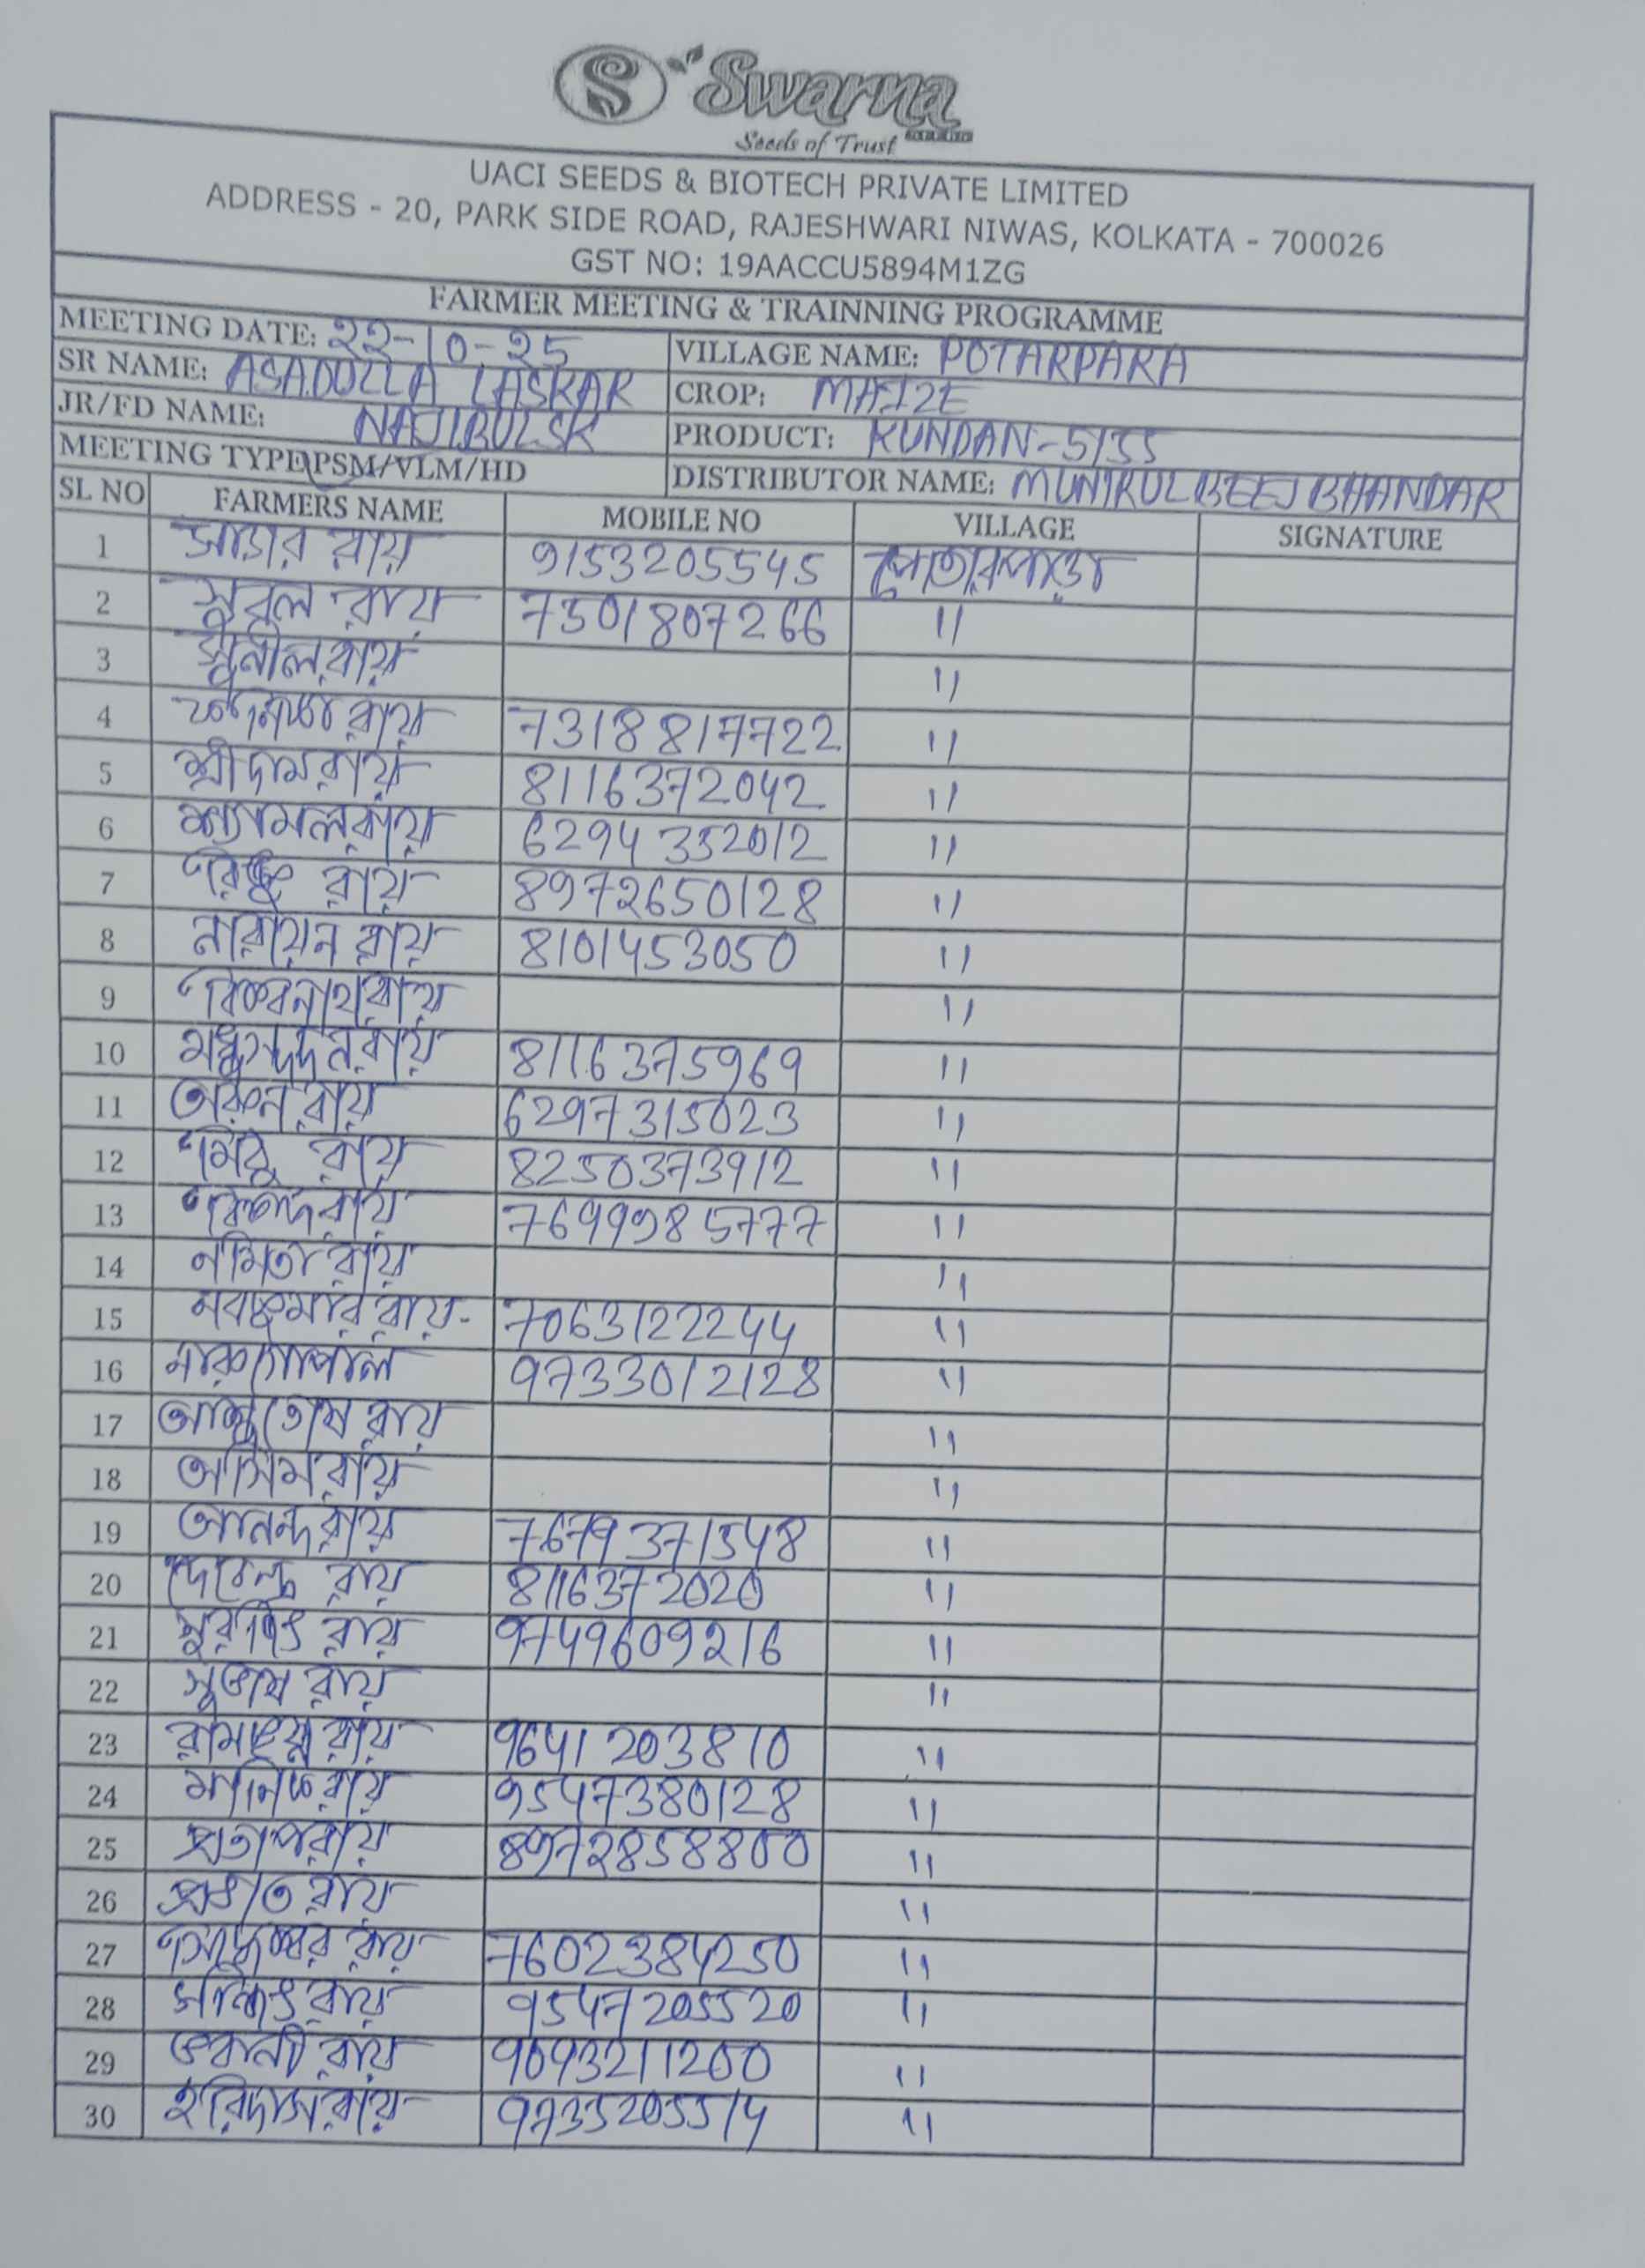 Swarna
Seeds of Trust
UACI SEEDS & BIOTECH PRIVATE LIMITED
ADDRESS - 20, PARK SIDE ROAD, RAJESHWARI NIWAS, KOLKATA - 700026
GST NO: 19AACCU5894M1ZG
FARMER MEETING & TRAINNING PROGRAMME
MEETING DATE: 22-10-25 VILLAGE NAME: POTARPARA
SR NAME: ASADOLLA LASKAR CROP: MAIZE
JR/FD NAME: NAJIBUL SK PRODUCT: KUNDAN-5135
MEETING TYPE PSM/VLM/HD DISTRIBUTOR NAME: MUNIRUL BEEJ BHANDAR
SL NO FARMERS NAME MOBILE NO VILLAGE SIGNATURE
1 সাগর রায় 9153205545 পোতারপাড়া
2 সুবল রায় 7501807266 "
3 সুনীল রায় "
4 রায় 7318817722 "
5 শ্রীদাম রায় 8116372042 "
6 শ্যামল রায় 6294332012 "
7 রায় 8972650128 "
8 নারায়ন রায় 8101453050 "
9 বিশ্বনাথ রায় "
10 মধুসুদন রায় 8116375969 "
11 অরুন রায় 6297315023 "
12 রায় 8250373912 "
13 রায় 7699985777 "
14 নমিতা রায় "
15 নবকুমার রায় 7063122244 "
16 9733012128 "
17 আশুতোষ রায় "
18 অসিম রায় "
19 আনন্দ রায় 7679371548 "
20 দেবেন্দ্র রায় 8116372020 "
21 সুরজিৎ রায় 9749609216 "
22 সুভাষ রায় "
23 রায় 9641203810 "
24 মানিক রায় 9547380128 "
25 প্রতাপ রায় 8972858800 "
26 প্রভাত রায় "
27 রায় 7602384250 "
28 রায় 9547205520 "
29 ভবানী রায় 9093211200 "
30 হরিদাস রায় 9735205514 "